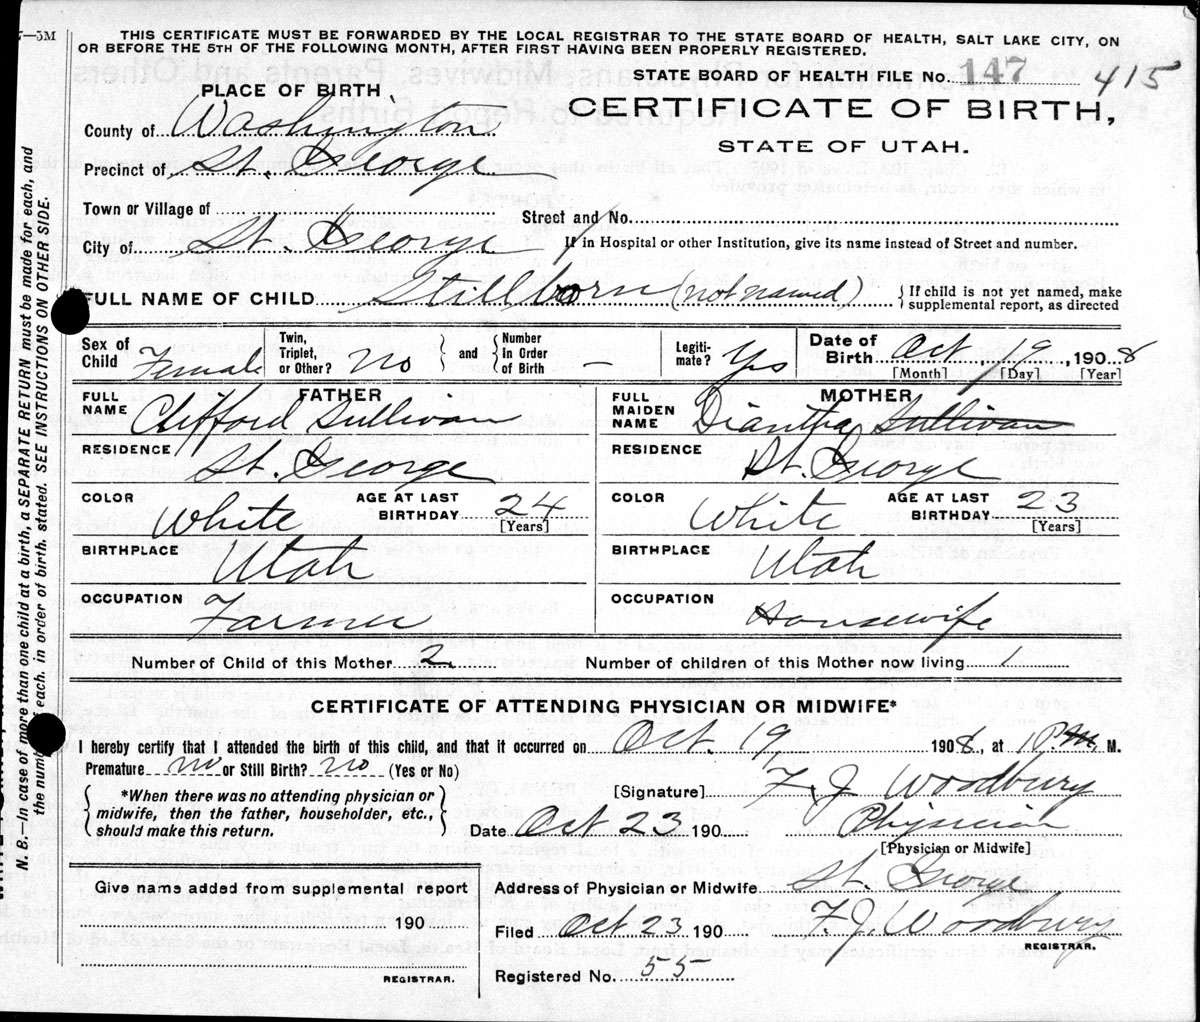 —5M
THIS CERTIFICATE MUST BE FORWARDED BY THE LOCAL REGISTRAR TO THE STATE BOARD OF HEALTH, SALT LAKE CITY, ON
OR BEFORE THE 5TH OF THE FOLLOWING MONTH, AFTER FIRST HAVING BEEN PROPERLY REGISTERED.
STATE BOARD OF HEALTH FILE No. 147 415
PLACE OF BIRTH
CERTIFICATE OF BIRTH,
County of Washington
STATE OF UTAH.
Precinct of St. George
Town or Village of
Street and No.
City of St. George
If in Hospital or other Institution, give its name instead of Street and number.
FULL NAME OF CHILD Stillborn (not named)
If child is not yet named, make
supplemental report, as directed
Sex of Child Female
Twin, Triplet, or Other? no
and Number in Order of Birth
Legiti- mate? Yes
Date of Birth Oct 19 1908
[Month] [Day] [Year]
FATHER
FULL NAME Clifford Sullivan
RESIDENCE St. George
COLOR White
AGE AT LAST BIRTHDAY 24 [Years]
BIRTHPLACE Utah
OCCUPATION Farmer
MOTHER
FULL MAIDEN NAME Diantha Sullivan
RESIDENCE St. George
COLOR White
AGE AT LAST BIRTHDAY 23 [Years]
BIRTHPLACE Utah
OCCUPATION Housewife
Number of Child of this Mother 2 Number of children of this Mother now living 1
CERTIFICATE OF ATTENDING PHYSICIAN OR MIDWIFE*
I hereby certify that I attended the birth of this child, and that it occurred on Oct. 19, 1908, at 1 P M.
Premature no or Still Birth? no (Yes or No)
*When there was no attending physician or
midwife, then the father, householder, etc.,
should make this return.
[Signature] F. J. Woodbury
Date Oct 23 190 Physician
[Physician or Midwife]
Give name added from supplemental report
190
REGISTRAR.
Address of Physician or Midwife St. George
Filed Oct 23 190 F. J. Woodbury
REGISTRAR.
Registered No. 55
N. B.—In case of more than one child at a birth, a SEPARATE RETURN must be made for each, and
the number each, in order of birth, stated. SEE INSTRUCTIONS ON OTHER SIDE.